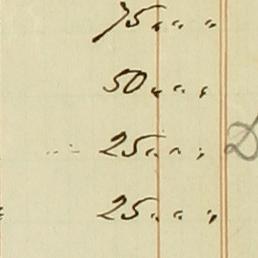 75 " " "
50 " " "
25 " " "
25 " " "